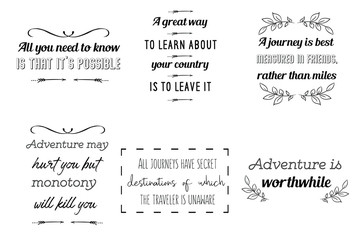 All you need to know
IS THAT IT'S POSSIBLE
A great way
TO LEARN ABOUT
your country
IS TO LEAVE IT
A journey is best
MEASURED IN FRIENDS,
rather than miles
Adventure may
hurt you but
monotony
will kill you
ALL JOURNEYS HAVE SECRET
destinations of which
THE TRAVELER IS UNAWARE
Adventure is
worthwhile